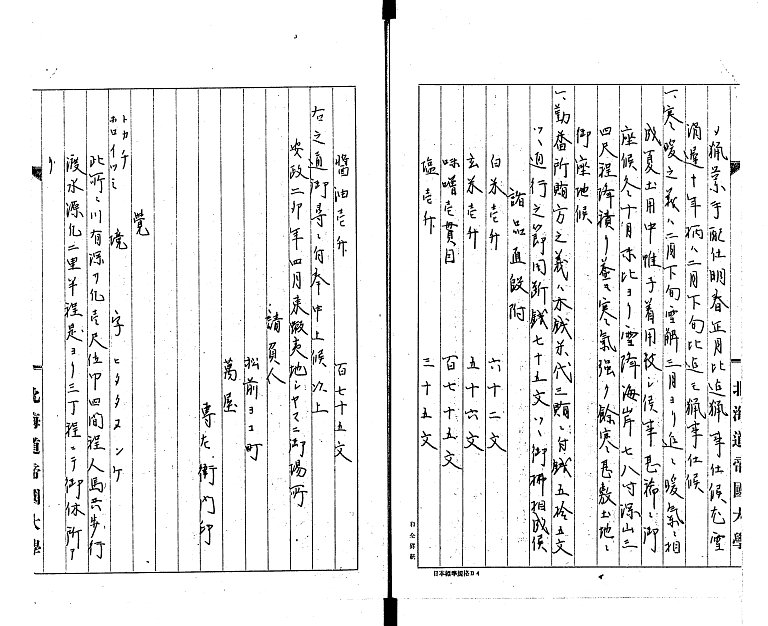 ノ猟業手配仕明春正月比迠猟事仕候尤雪
消遅キ年柄ハ二月下旬比迠モ猟事仕候
一、寒暖之義ハ二月下旬雪解三月ヨリ追々暖気ニ相
成夏土用中帷子着用致シ候事甚稀ニ御
座候冬十月末比ヨリ雪降海岸七八寸深山三
四尺程降積リ至テ寒気強ク余寒甚敷土地ニ
御座地候
一、勤番所賄方之義ハ木銭米代三賄ニ付銭五拾五文
ツヽ通行之節同断銭七十五文ツヽ御拂相成候
諸品直段附
白米壱升 六十二文
玄米壱升 五十六文
味噌壱貫目 百七十五文
塩壱升 三十五文
北海道帝國大學
日本標準規格B4
醤油壱升 百七十五文
右之通御尋ニ付奉申上候以上
安政二卯年四月東蝦夷地シヤマニ御場所
請負人
松前ヨコ町
萬屋
専左衛門印
覺
トカチ
ホロイツミ 境 字ヒタタヌンケ
此所ニ川有深サ凡壱尺位巾四間程人馬共歩行
渡水源凡二里半程是ヨリ三丁程ニテ御休所ア
リ
北海道帝國大學